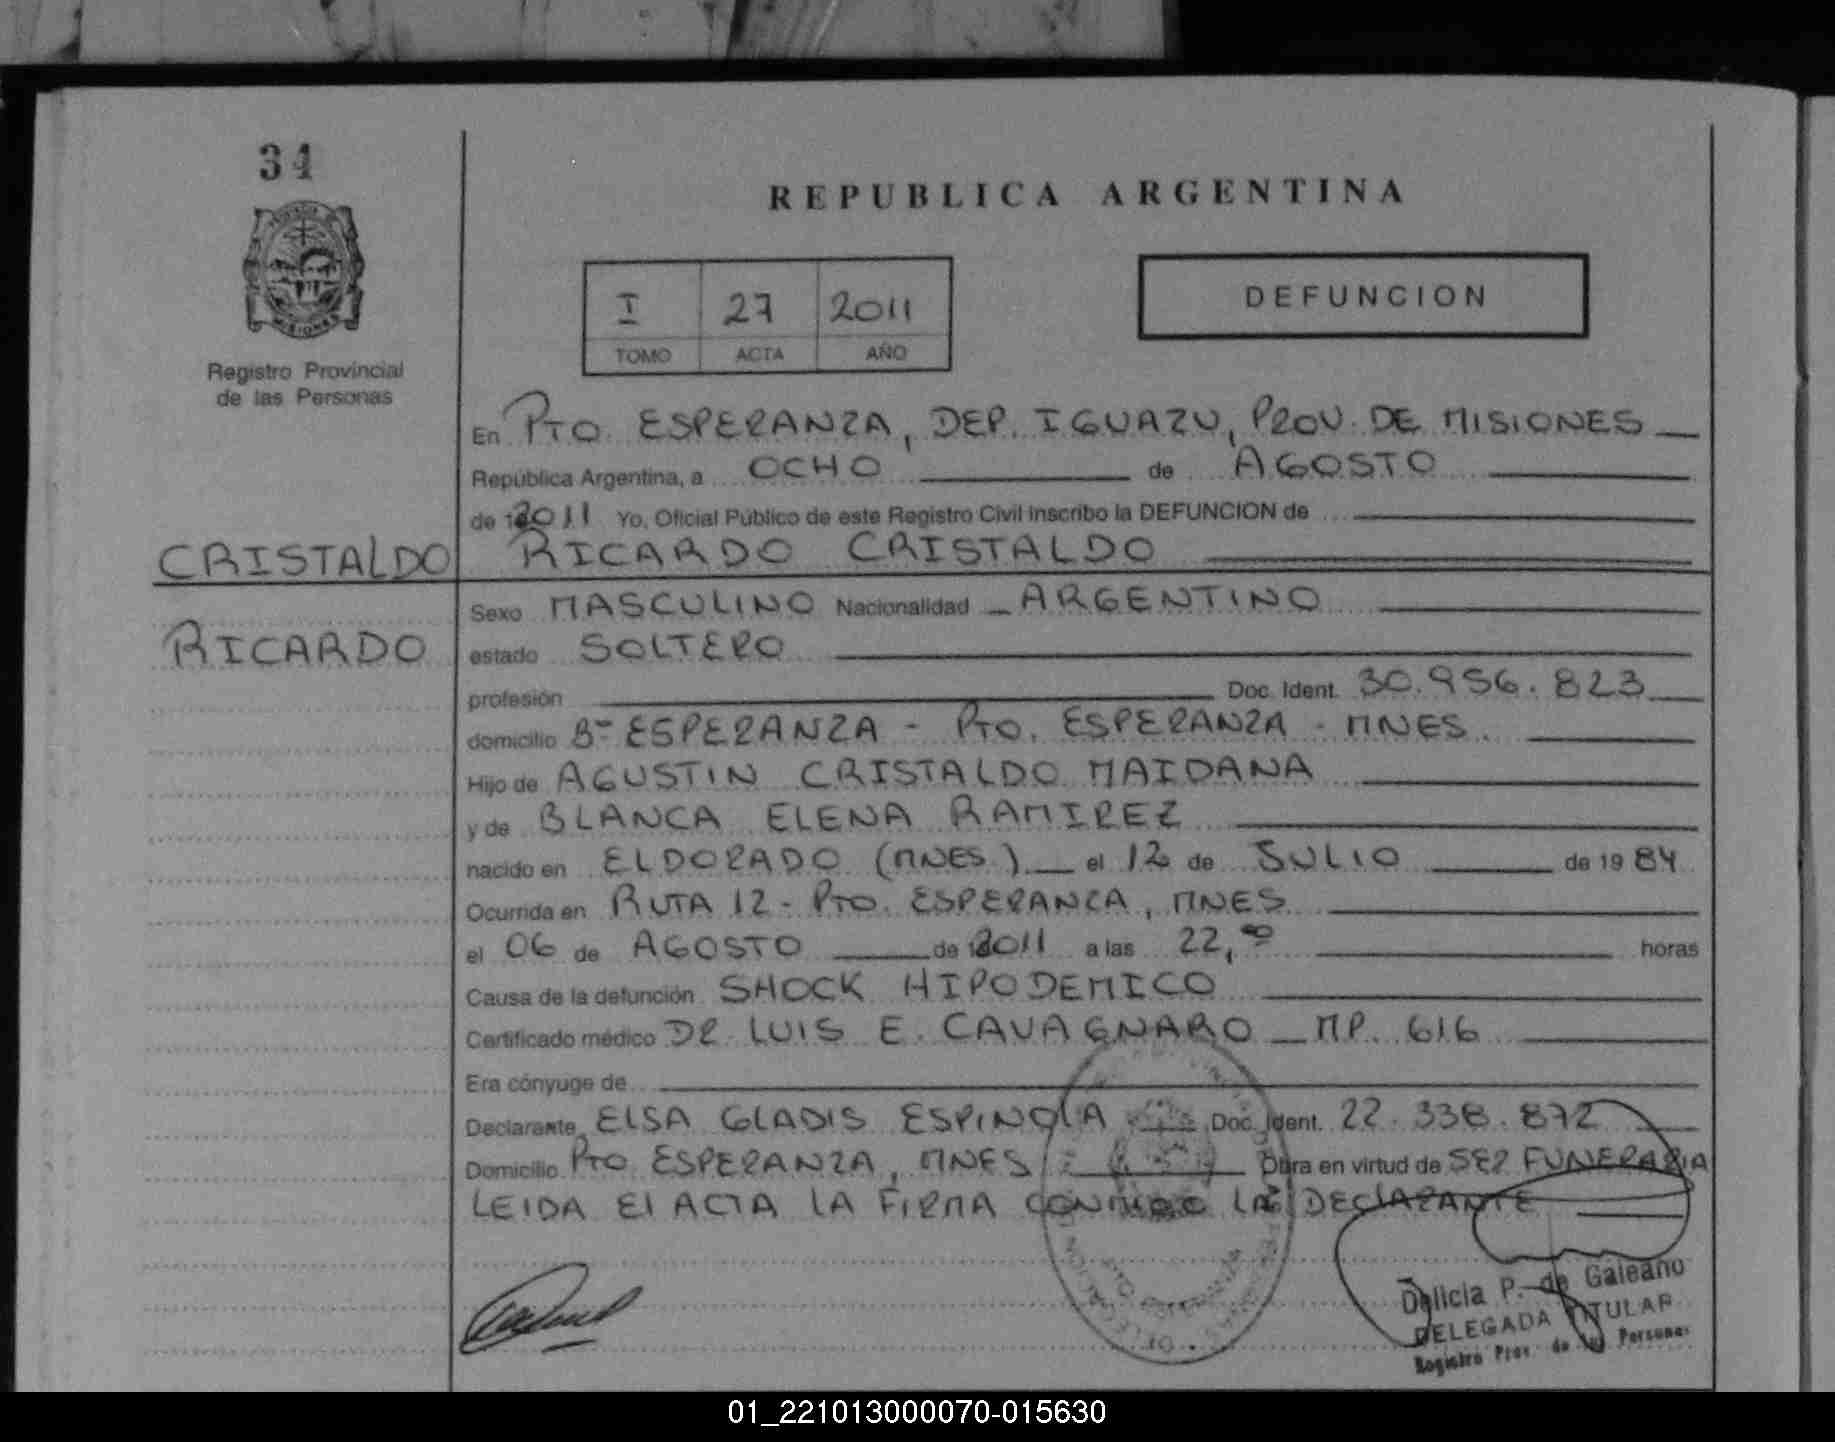 34
Registro Provincial
de las Personas
REPUBLICA ARGENTINA
I 27 2011
TOMO ACTA AÑO
DEFUNCION
En PTO. ESPERANZA, DEP. IGUAZU, PROV. DE MISIONES
República Argentina, a OCHO de AGOSTO
de 2011 Yo, Oficial Público de este Registro Civil inscribo la DEFUNCION de
CRISTALDO RICARDO CRISTALDO
Sexo MASCULINO Nacionalidad ARGENTINO
RICARDO
estado SOLTERO
profesión Doc. Ident. 30.956.823
domicilio Bº ESPERANZA - PTO. ESPERANZA - MNES.
Hijo de AGUSTIN CRISTALDO MAIDANA
y de BLANCA ELENA RAMIREZ
nacido en ELDORADO (MNES.) el 12 de JULIO de 1984
Ocurrida en RUTA 12 - PTO. ESPERANZA, MNES
el 06 de AGOSTO de 2011 a las 22,00 horas
Causa de la defunción SHOCK HIPODEMICO
Certificado médico DR. LUIS E. CAVAGNARO MP. 616
Era cónyuge de
Declarante ELSA GLADIS ESPINOLA Doc. Ident. 22.338.872
Domicilio PTO ESPERANZA, MNES Obra en virtud de SER FUNERARIA
LEIDA El ACTA LA FIRMA CONMIGO LA DEClARANTE
Delicia P. de Galeano
DELEGADA TITULAR
Registro Prov. de las Personas
01_221013000070-015630